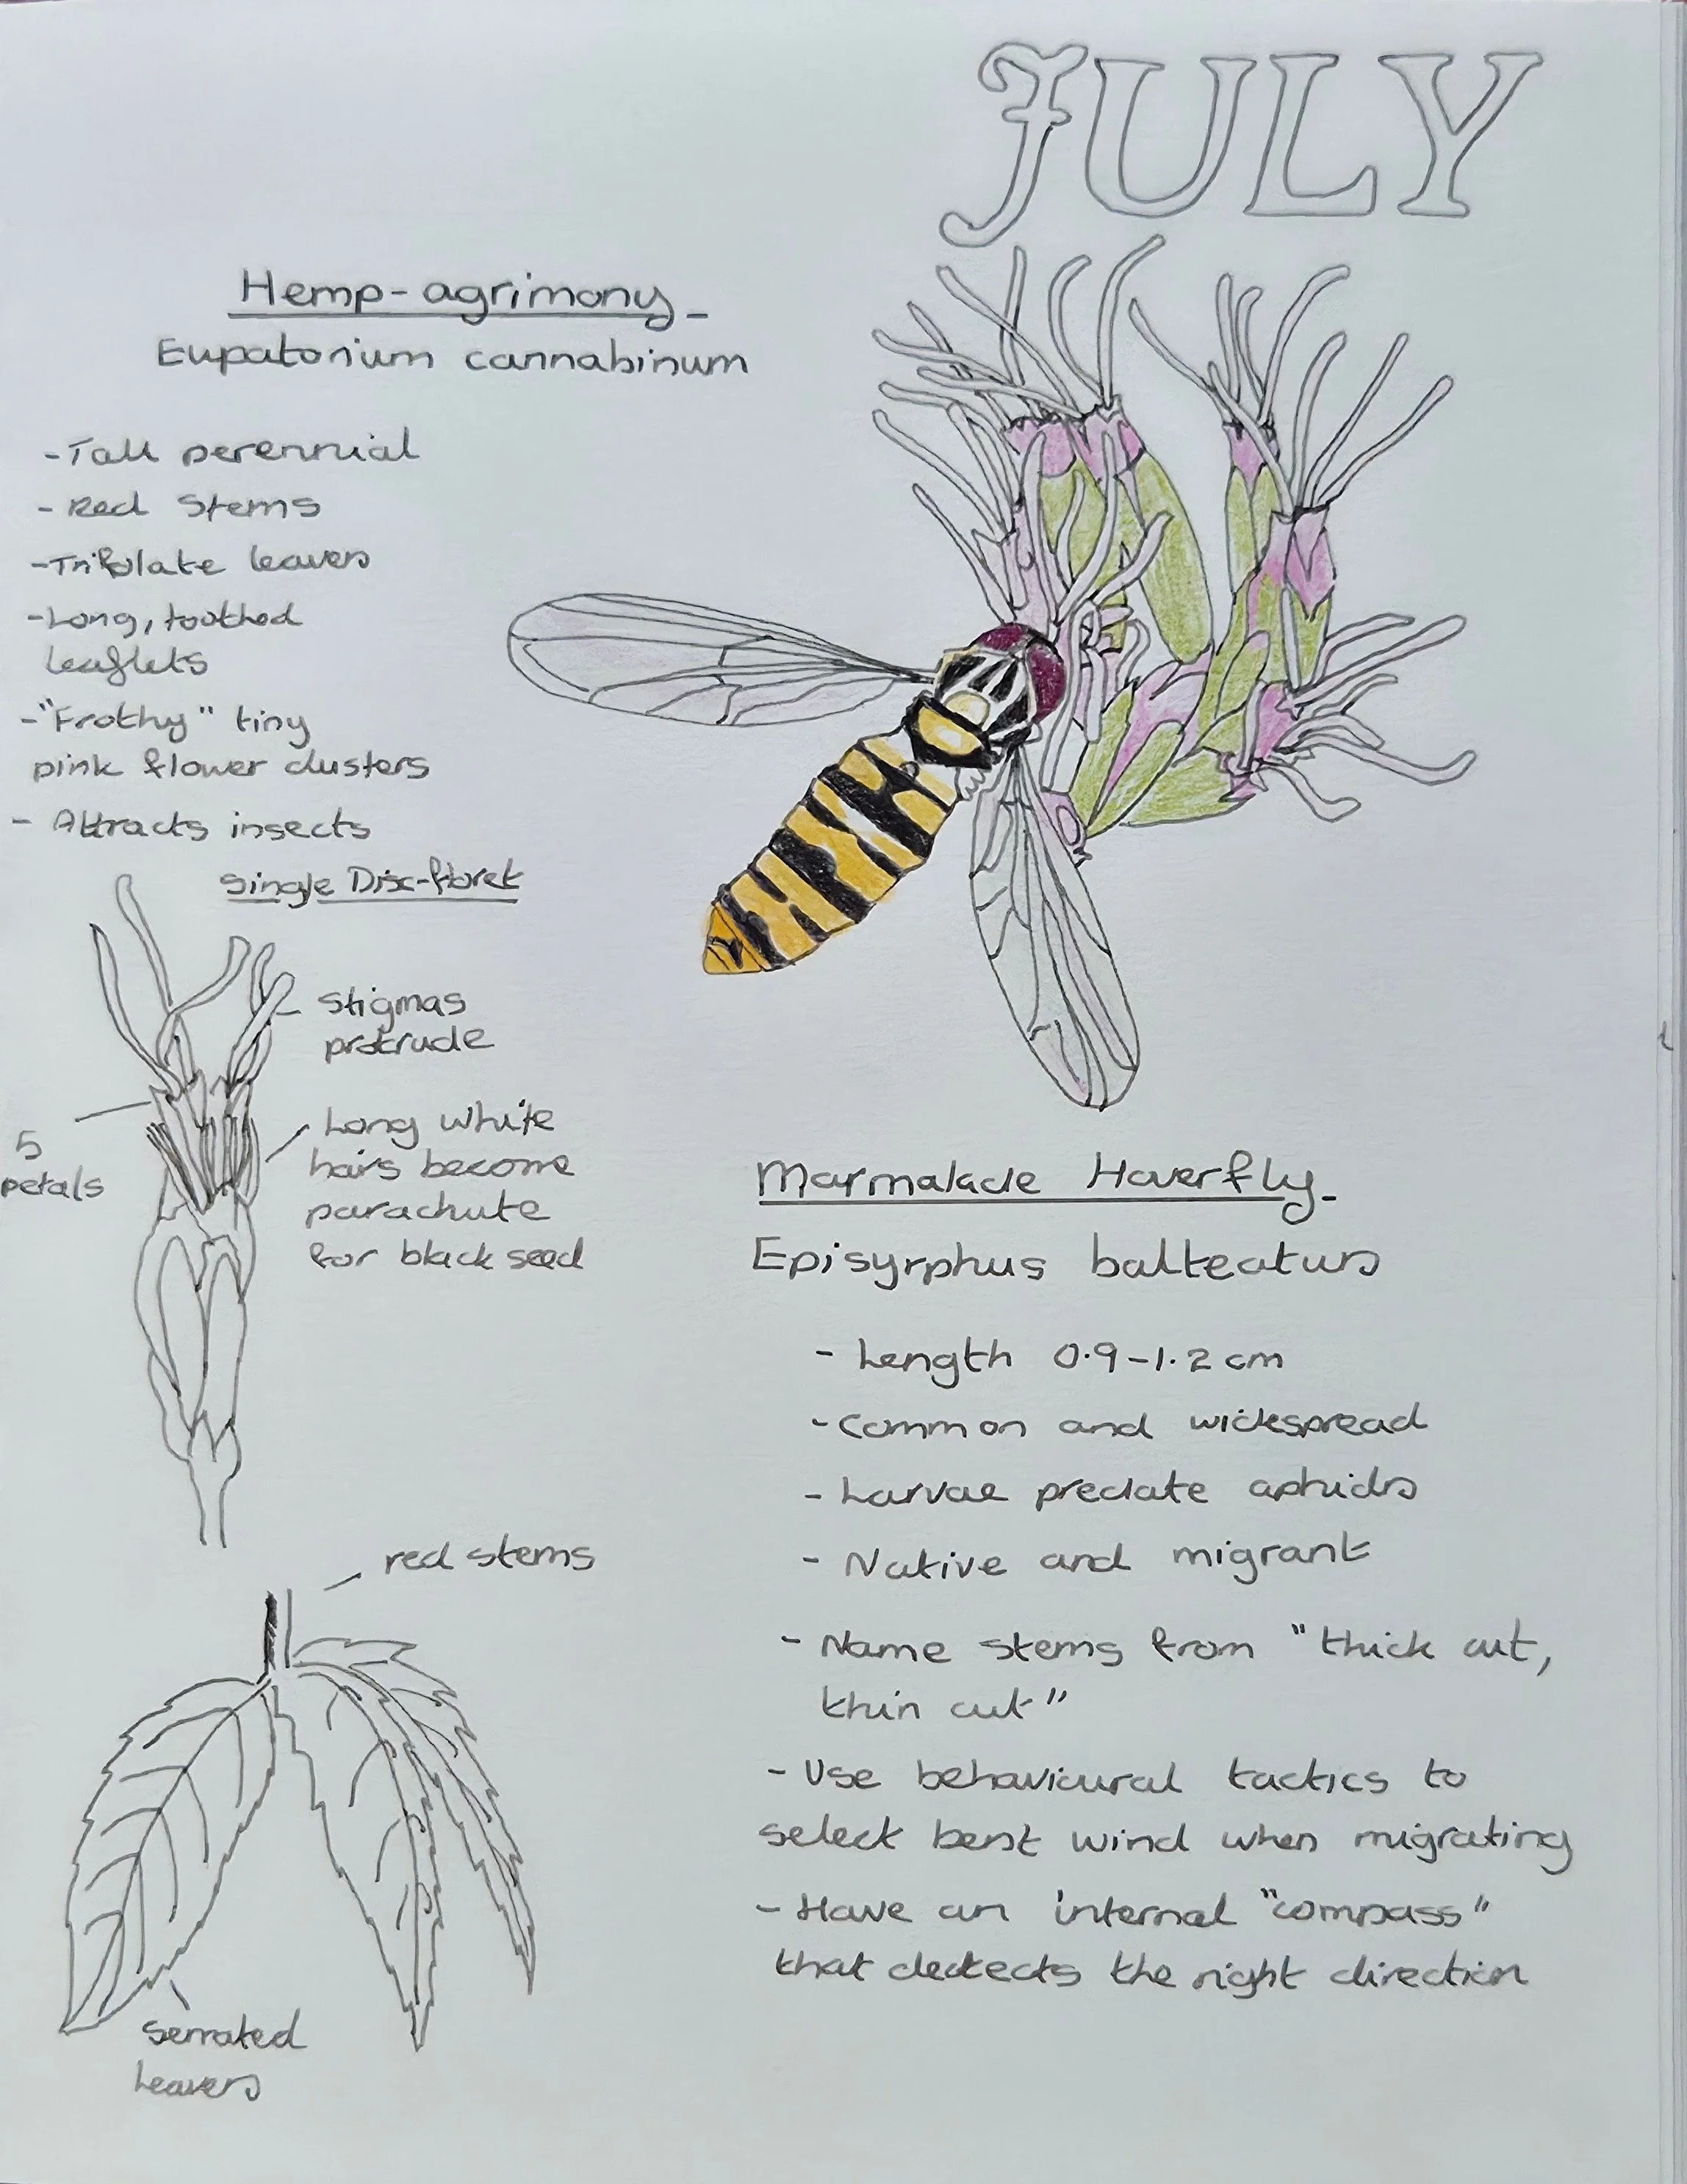 JULY
Hemp-agrimony
Eupatorium cannabinum
- Tall perennial
- Red stems
- Trifolate leaves
- Long, toothed
leaflets
- "Frothy" tiny
pink flower clusters
- Attracts insects
Single Disc-floret
Stigmas
protrude
5
petals
Long white
hairs become
parachute
for black seed
red stems
Serrated
leaves
Marmalade Hoverfly
Episyrphus balteatus
- Length 0.9-1.2cm
- Common and widespread
- Larvae predate aphids
- Native and migrant
- Name stems from "thick cut,
thin cut"
- Use behavioural tactics to
select best wind when migrating
- Have an internal "compass"
that detects the right direction